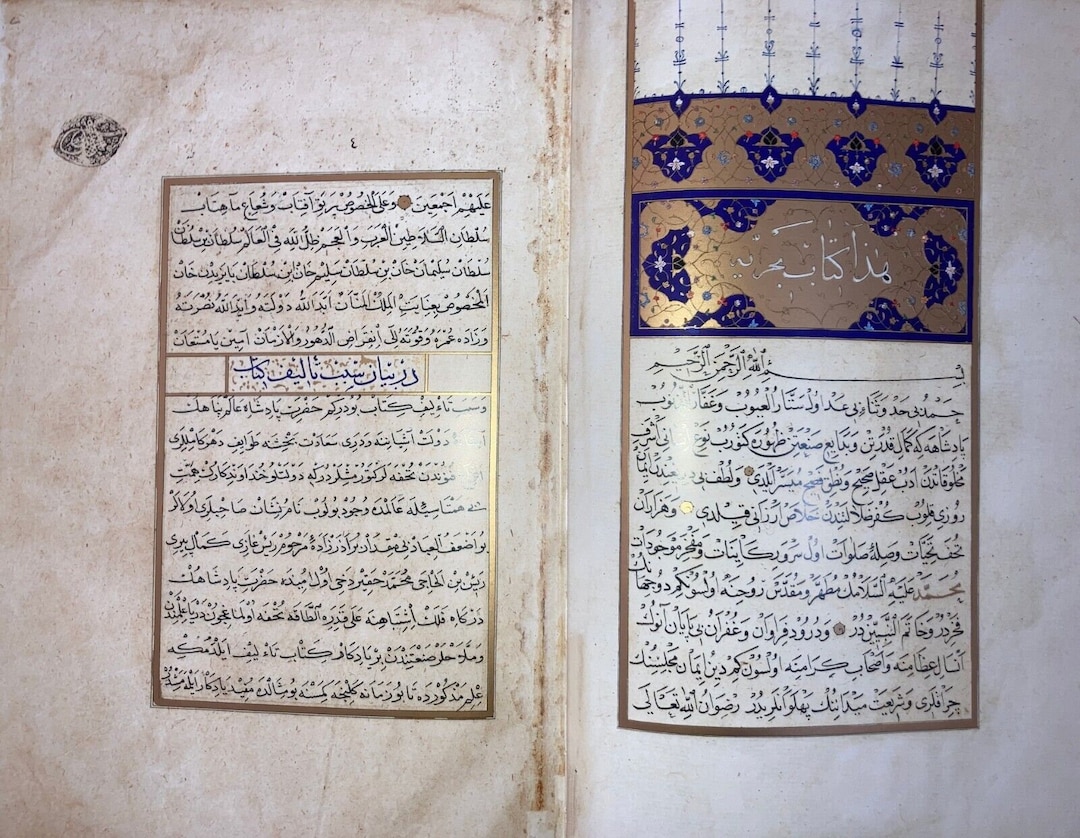 هذا كتاب بحریه
بسم الله الرحمن الرحيم
حمد بی حد و ثناء بی عد اول ستار العیوب و غفار الذنوب
پادشاهه که کمال قدرتن و بدایع صنعتن ظهوره کتورب نوع انسانی اشرف
مخلوقاتدن ادب عقل صحیح و نطق فصیح میسر ایلدی و لطف بی دریغندن ایمان
روزی قلوب کفر ضلالتیندن خلاص ارزانی قیلدی و هزاران
تحف تحیات و صله صلوات اول سرور کاینات و مفخر موجودات
محمد علیه السلامك مطهر و مقدس روحنه اولسون كم دو جهانك
فخریدر و خاتم النبییندر و درود فراوان و غفران بی پایان آنوك
آل عظامنه و اصحاب کرامنه اولسون كم دین ایمان مجلسنك
چراغلری و شریعت میداننك پهلوانلریدر رضوان الله تعالی
٤
علیهم اجمعین و علی الخصوص پرتو آفتاب و شعاع ماهتاب
سلطان السلاطین العرب والعجم ظل الله فی العالم سلطان بن سلطان
سلطان سلیمان خان بن سلطان سلیم خان ابن سلطان بایزید خان
المخصوص بعنایت الملك المنان ابد الله دولته و اید الله نصرته
و زاده عمره و قوته الی انقراض الدهور والازمان آمین یا مستعان
در بیان سبب تألیف کتاب
و سبب تاءلیف کتاب بودرکم حضرت پادشاه عالم پناهك
دولت آشیاننه و دری سعادت بخشنه طوایف دهر کاملری
هنوندن تحفه لر کتورشلردر که دولتلو خداوندکارك همت
بی همتاسیله عالمده وجود بولوب نام و نشان صاحبلری اولالر
بو اضعف العباد دخی برادر زادهٔ مرحوم ریس غازی کمال پیری
ریس بن الحاجی محمد حقیر دخی اول امیده حضرت پادشاهك
درکاه فلك اشتباهنه علی قدره الطاقه تحفه اولماغیچون دریا علمندن
و ملاحلر صنعتندن بر یادکار کتاب تاءلیف ایلدم که
علم مذکورده تا بو زمانه کلنجه کمسنه بو مثالده مفید یادکار ایله